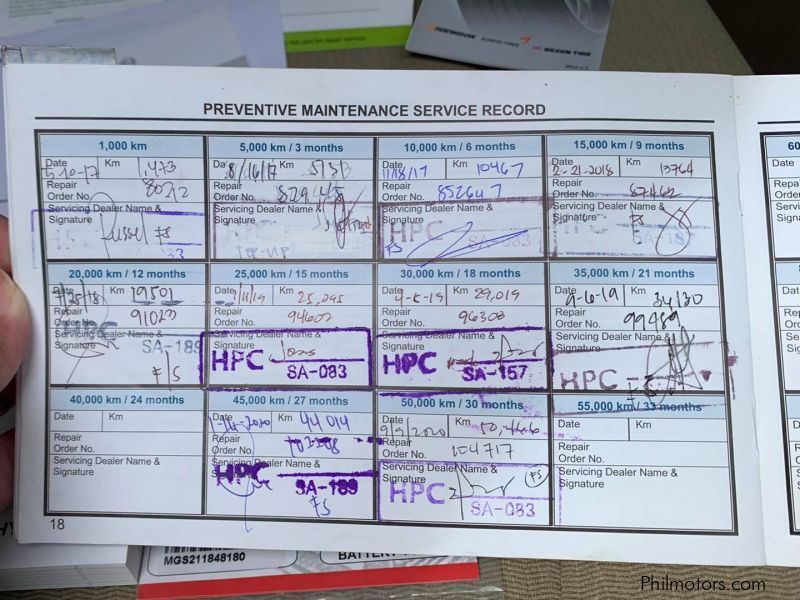 NEXEN TIRE
PREVENTIVE MAINTENANCE SERVICE RECORD
1,000 km
Date 5-10-17 Km 1,473
Repair
Order No. 80212
Servicing Dealer Name &
Signature
Russel FS
5,000 km / 3 months
Date 8/16/17 Km
Repair
Order No.
Servicing Dealer Name &
Signature
TOP-UP
10,000 km / 6 months
Date 11/18/17 Km 10467
Repair
Order No. 852647
Servicing Dealer Name &
Signature
HPC
FS
SA-083
15,000 km / 9 months
Date 2-21-2018 Km 13764
Repair
Order No. 87462
Servicing Dealer Name &
Signature FS
20,000 km / 12 months
Date 7/25/18 Km 19501
Repair
Order No. 91023
Servicing Dealer Name &
Signature
HPC
SA-189
F/S
25,000 km / 15 months
Date Km 25,245
Repair
Order No. 94602
Servicing Dealer Name &
Signature
HPC
SA-083
30,000 km / 18 months
Date Km 29,019
Repair
Order No. 96308
Servicing Dealer Name &
Signature
HPC
SA-157
35,000 km / 21 months
Date 9-6-19 Km 34130
Repair
Order No. 99489
Servicing Dealer Name &
Signature
HPC
40,000 km / 24 months
Date Km
Repair
Order No.
Servicing Dealer Name &
Signature
45,000 km / 27 months
Date Km 44,014
Repair
Order No.
Servicing Dealer Name &
Signature
HPC
SA-189
FS
50,000 km / 30 months
Date 9/9/2020 Km 50,466
Repair
Order No. 104717
Servicing Dealer Name &
Signature
FS
HPC
SA-083
55,000 km / 33 months
Date Km
Repair
Order No.
Servicing Dealer Name &
Signature
60
18
MGS211848180
BATTERY
Philmotors.com